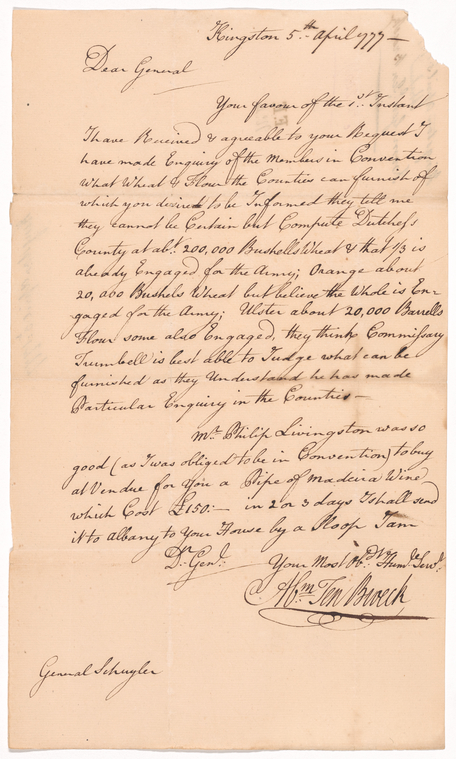 Kingston 5.th April 1777—
Dear General
Your favour of the 1st. Instant
I have Received & agreeable to your Request I
have made Enquiry of the Members in Convention
What Wheat & Flour the Counties can furnish of
which you desired to be Informed they tell me
they cannot be Certain but Compute Dutchess
County at abt. 200,000 Bushells Wheat & that 1/3 is
already Engaged for the Army; Orange about
20,000 Bushels Wheat but believe the Whole is En-
gaged for the Army; Ulster about 20,000 Barrells
Flour some also Engaged, they think Commissary
Trumbell is best able to Judge what can be
furnished as they Understand he has made
Particular Enquiry in the Counties—
Mr. Philip Livingston was so
good (as I was obliged to be in Convention) to buy
at Vendue for You a Pipe of Madeira Wine
which Cost £150:— in 2 or 3 days I shall send
it to Albany to Your House by a Sloop I am
Dr. Genl. Your Most Obdt. Humle. Servt.
Abm. Ten Broeck
General Schuyler